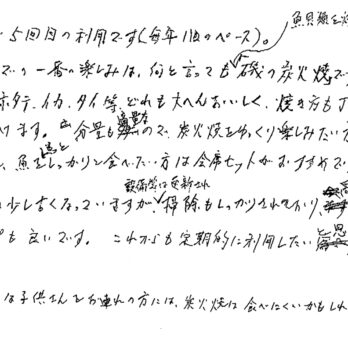 魚貝類を
5回目の利用です(毎年1泊のペース)。
での一番の楽しみは、何と言っても磯の炭火焼で
ホタテ、イカ、タイ等どれも大へんおいしく、焼き方も
ます。分量も適量なので、炭火焼をゆっくり楽しみたい方
、魚をもっとしっかりと食べたい方は会席セットがおすすめで
設備等は更新され
少し古くなっていますが、掃除もしっかりされており、
も良いです。これからも定期的に利用したいと思
は子供さんをお連れの方には、炭火焼は食べにくいかもしれ